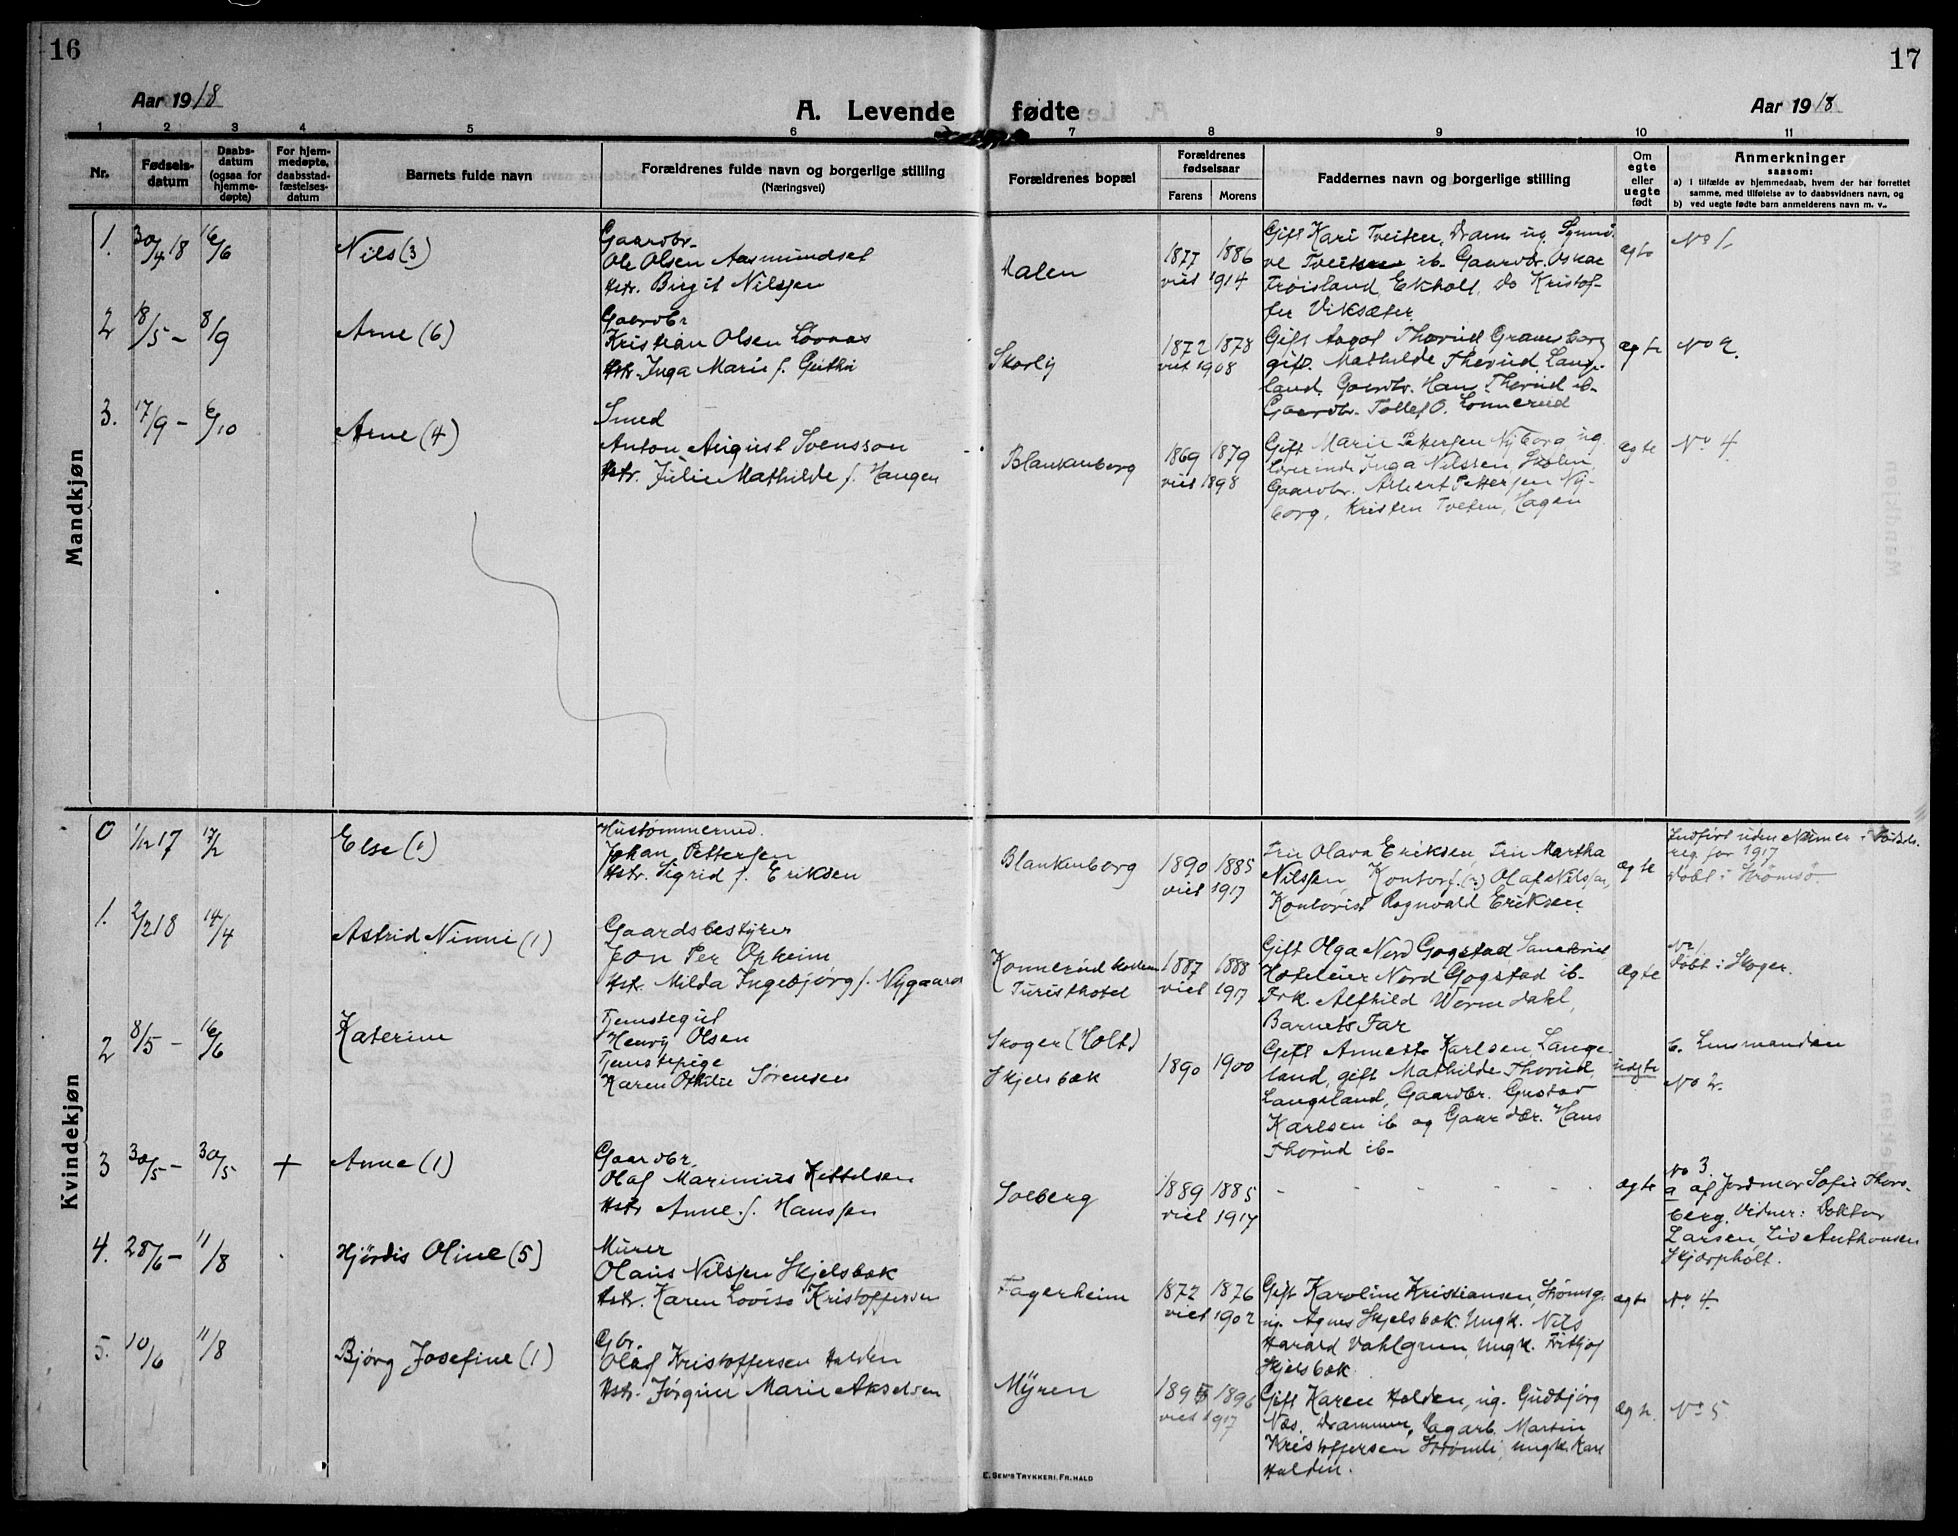 16
17
Aar 1918
A. Levende fødte
Aar 1918
1 2 3 4 5 6 7 8 9 10 11
Nr.
Fødsels-
datum
Daabs-
datum
(ogsaa for
hjemme-
døpte)
For hjem-
medøpte,
daabsstad-
fæstelses-
datum
Barnets fulde navn
Forældrenes fulde navn og borgerlige stilling
(Næringsvei)
Forældrenes bopæl
Forældrenes
fødselsaar
Farens Morens
Faddernes navn og borgerlige stilling
Om
egte
eller
uegte
født
Anmerkninger
saasom:
a) i tilfælde av hjemmedaab, hvem der har forrettet
samme, med tilføielse av to daabsvidners navn, og
b) ved uegte fødte barn anmelderens navn m. v.
Mandkjøn
1. 30/4 18 16/6 Nils (3)
Gaardbr.
Ole Olsen Aasmundset
Hstr. Birgit Nilssen
Dalen
1877 1886
viet 1914
Gift Kari Tveiten, Dram ug. Synnø-
ve Tveiten ib. Gaardbr. Oskar
Trøisland, Ekholt, Do Kristof-
fer Viksæter.
ægte
No 1.
2 18/5 - 8/9 Arne (6)
Gaardbr
Kristian Olsen Løvaas
Hstr. Inga Marie f. Geithi
Skarly
1872 1878
viet 1908
Gift Aagot Thorud Gramsborg
gift. Mathilde Thorud Lange-
land, Gaardbr. Hans Thorud ib.
Gaardbr. Tollef O. Lonnerud
ægte
No 2.
3. 17/9 - 6/10 Arne (4)
Smed
Anton August Svensson
Hstr. Julie Mathilde f. Haugen
Blankenborg
1869 1879
viet 1898
Gift Marie Pettersen Nyborg ug.
Lærerinde Inga Nilssen Skolen,
Gaardbr. Albert Pettersen Ny-
borg, Kristen Tveten, Hagen
ægte
No 4.
Kvindekjøn
0 1/12 17 17/2 Else (1)
Hustømmermd.
Johan Pettersen
Hstr. Sigrid f. Eriksen
Blankenborg
1890 1885
viet 1917
Fru Olava Eriksen, Fru Martha
Nilssen, Kontorf. (?) Olaf Nilssen,
Kontorist Ragnvald Eriksen.
ægte
Indført uden Numer i Fødsels-
reg. for 1917
Døbt i Strømsø.
1. 2/2 18 14/4 Astrid Ninni (1)
Gaardsbestyrer
Jon Per Opheim
Hstr. Milda Ingebjørg f. Nygaard
Konnerud
Turisthotel
1887 1888
viet 1917
Gift Olga Nord Gogstad
Hoteleier Nord Gogstad ib.
Frk Alfhild Worm Dahl,
Barnets Far
ægte
No 1
Døbt i Skoger.
2 8/5 - 16/6 Katerine
Tjenstegut
Henry Olsen
Tjenstepige
Karen Othilie Sørensen
Skoger (Holt)
Skjelsbæk
1890 1900
Gift Annette Karlsen Lange-
land, gift Mathilde Thorud,
Langeland, Gaardbr. Gustav
Karlsen ib og Gaardbr. Hans
Thorud ib.
uægte
b. Lensmanden
No 2.
3 30/5 - 30/5 + Anne (1)
Gaardbr.
Olaf Marinius Kittelsen
Hstr Anne f. Hanssen
Solberg
1889 1885
viet 1917
- - - - -
ægte
No 3.
a af Jordmor Sofie Thors-
berg. Vidner: Doktor
Larsen Liv Anthonsen
Skjærpholt.
4. 28/6 - 11/8 Hjørdis Oline (5)
Murer
Olaus Nilssen Skjelsbæk
Hstr. Karen Lovise Kristoffersen
Fagerheim
1872 1876
viet 1902
Gift Karoline Kristiansen, Strømsg.
ug. Agnes Skjelsbæk. Ungk. Nils
Harald Dahlgren, Ungk. Fritjof
Skjelsbæk.
ægte
No 4.
5. 10/6 11/8 Bjørg Josefine (1)
Gbr.
Olaf Kristoffersen Halden
Hstr. Jørgine Marie Akselsen
Myren
1896
viet 1917
Gift Karen Halden, ug. Gudbjørg
Næs. Drammen, Dagarb. Martin
Kristoffersen Strømli, ungk. Karl
Halden.
ægte.
No 5
E. SEM'S TRYKKERI, FR.HALD